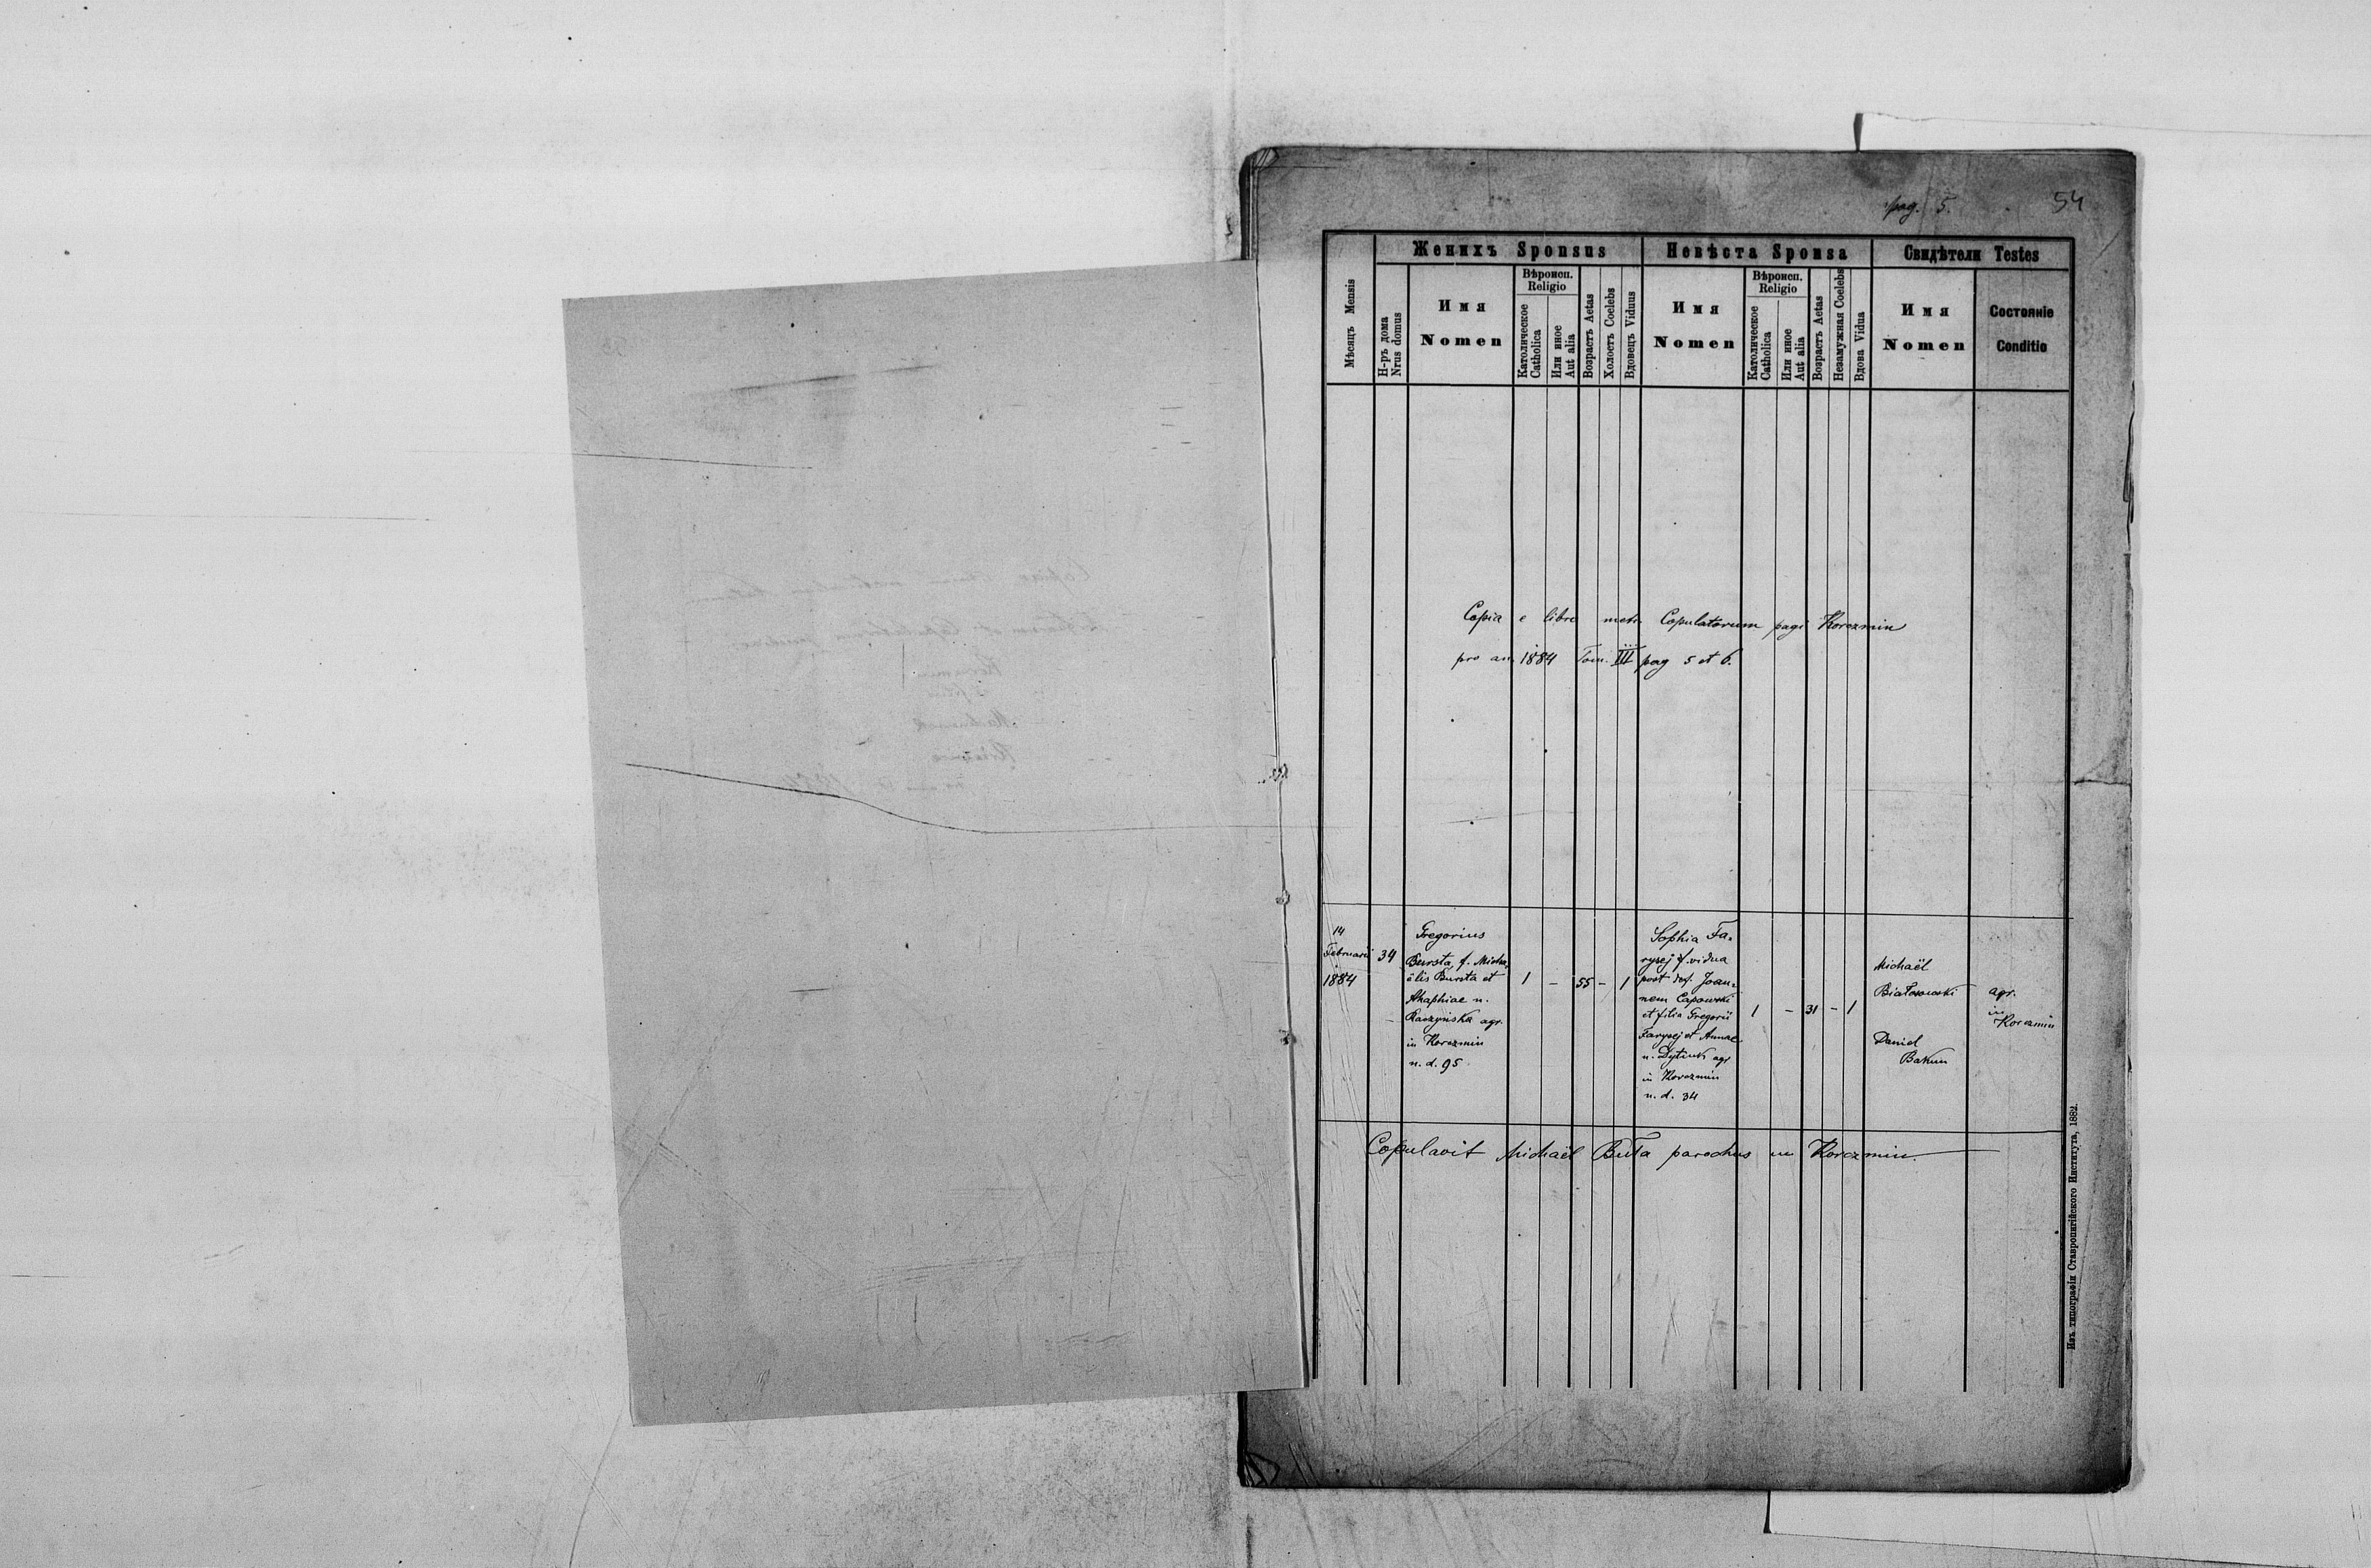 pag. 5.
54
Женихъ Sponsus
Невѣста Sponsa
Свидѣтели Testes
Мѣсяцъ Mensis
Н-ръ дома
Nrus domus
Имя
Nomen
Вѣроисп.
Religio
Католическое
Catholica
Или иное
Aut alia
Возрастъ Aetas
Холостъ Coelebs
Вдовецъ Viduus
Имя
Nomen
Вѣроисп.
Religio
Католическое
Catholica
Или иное
Aut alia
Возрастъ Aetas
Незамужная Coelebs
Вдова Vidua
Имя
Nomen
Состояніе
Conditio
Copia e libro metr. Copulatorum pagi Korczmin
pro an. 1884 Tom. III pag 5 et 6.
14
Februarii
1884
34
Gregorius
Bursta, f. Micha-
ëlis Bursta et
Ahaphiae n.
Raczyńska agr.
in Korczmin
n. d. 95.
1
–
55
–
1
Sophia Fa-
rysej f. vidua
post def. Joan-
nem Capowski
et filia Gregorii
Farysej et Annae
n. Dytiuk agr
in Korczmin
n. d. 34
1
–
31
–
1
Michaël
Białosowski
Daniel
Bakun
agr.
in
Korczmin
Copulavit Michaël Buła parochus in Korczmin.
Изъ типографіи Ставропигійского Института, 1882.